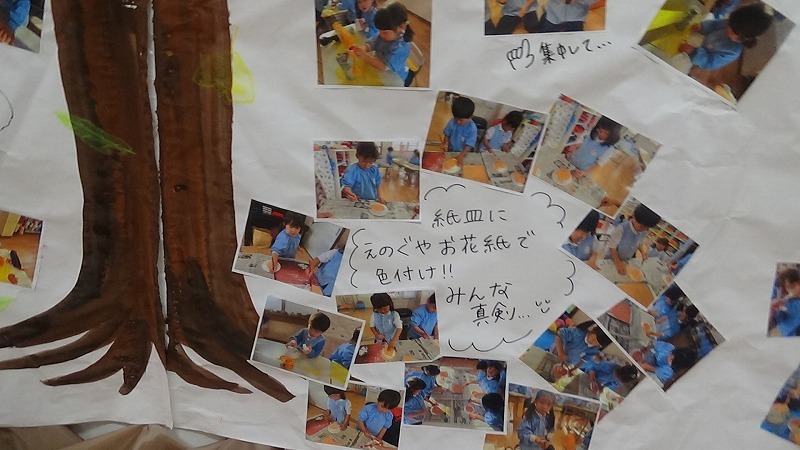 集中して...
紙皿に
えのぐやお花紙で
色付け!!
みんな
真剣...